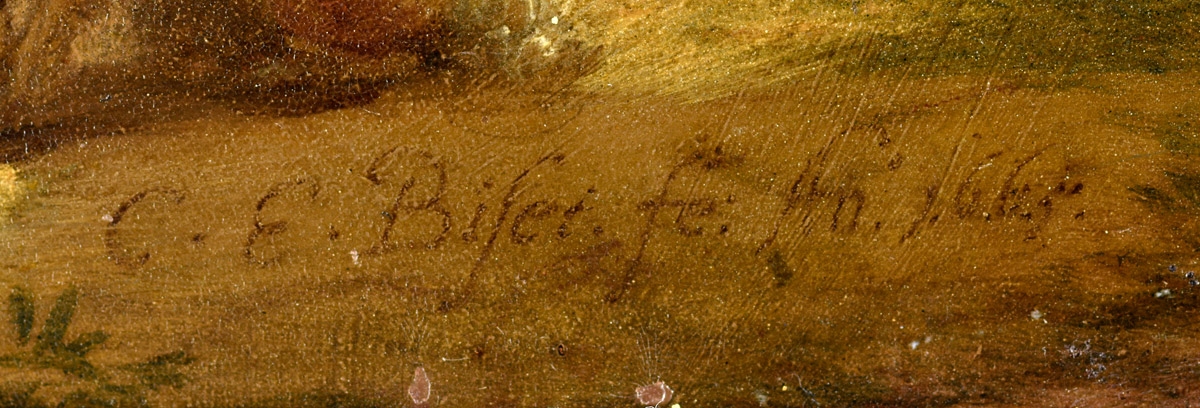 C. E. Biset. fe: An° 1665.